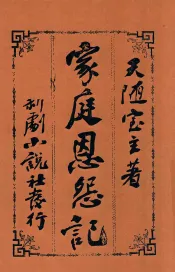 天陋室主著
家庭恩怨記
新劇小說社發行